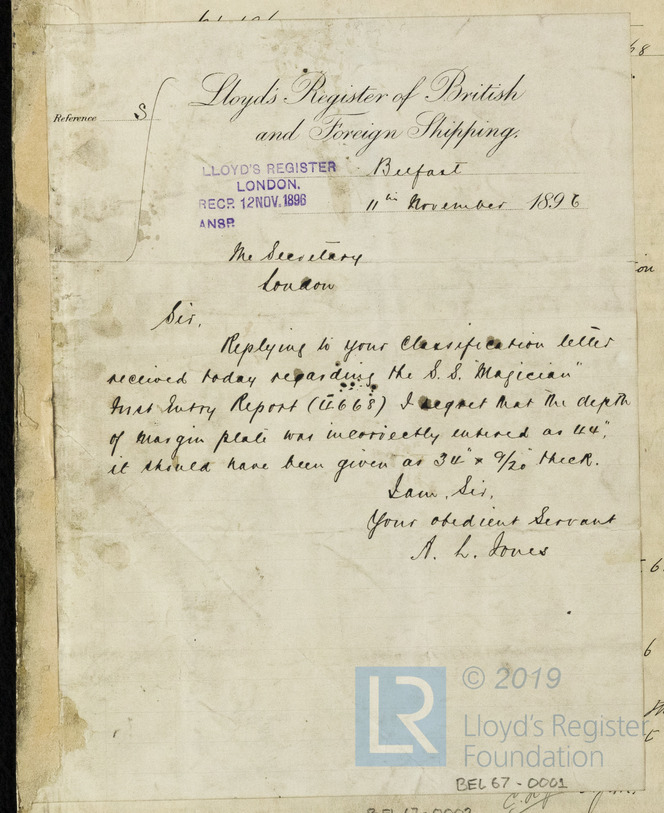 Lloyd's Register of British
and Foreign Shipping.
Reference S
LLOYD'S REGISTER
LONDON.
RECP. 12 NOV. 1896
ANSP.
Belfast
11th November 1896
The Secretary
London
Sir,
Replying to your Classification letter
received today regarding the S.S. Magician"
First Entry Report (4668) I regret that the depth
of margin plate was incorrectly entered as 44",
it should have been given as 34" x 9/20" thick.
I am, Sir,
Your obedient Servant
A. L. Jones
© 2019
LR
Lloyd's Register
Foundation
BEL67-0001